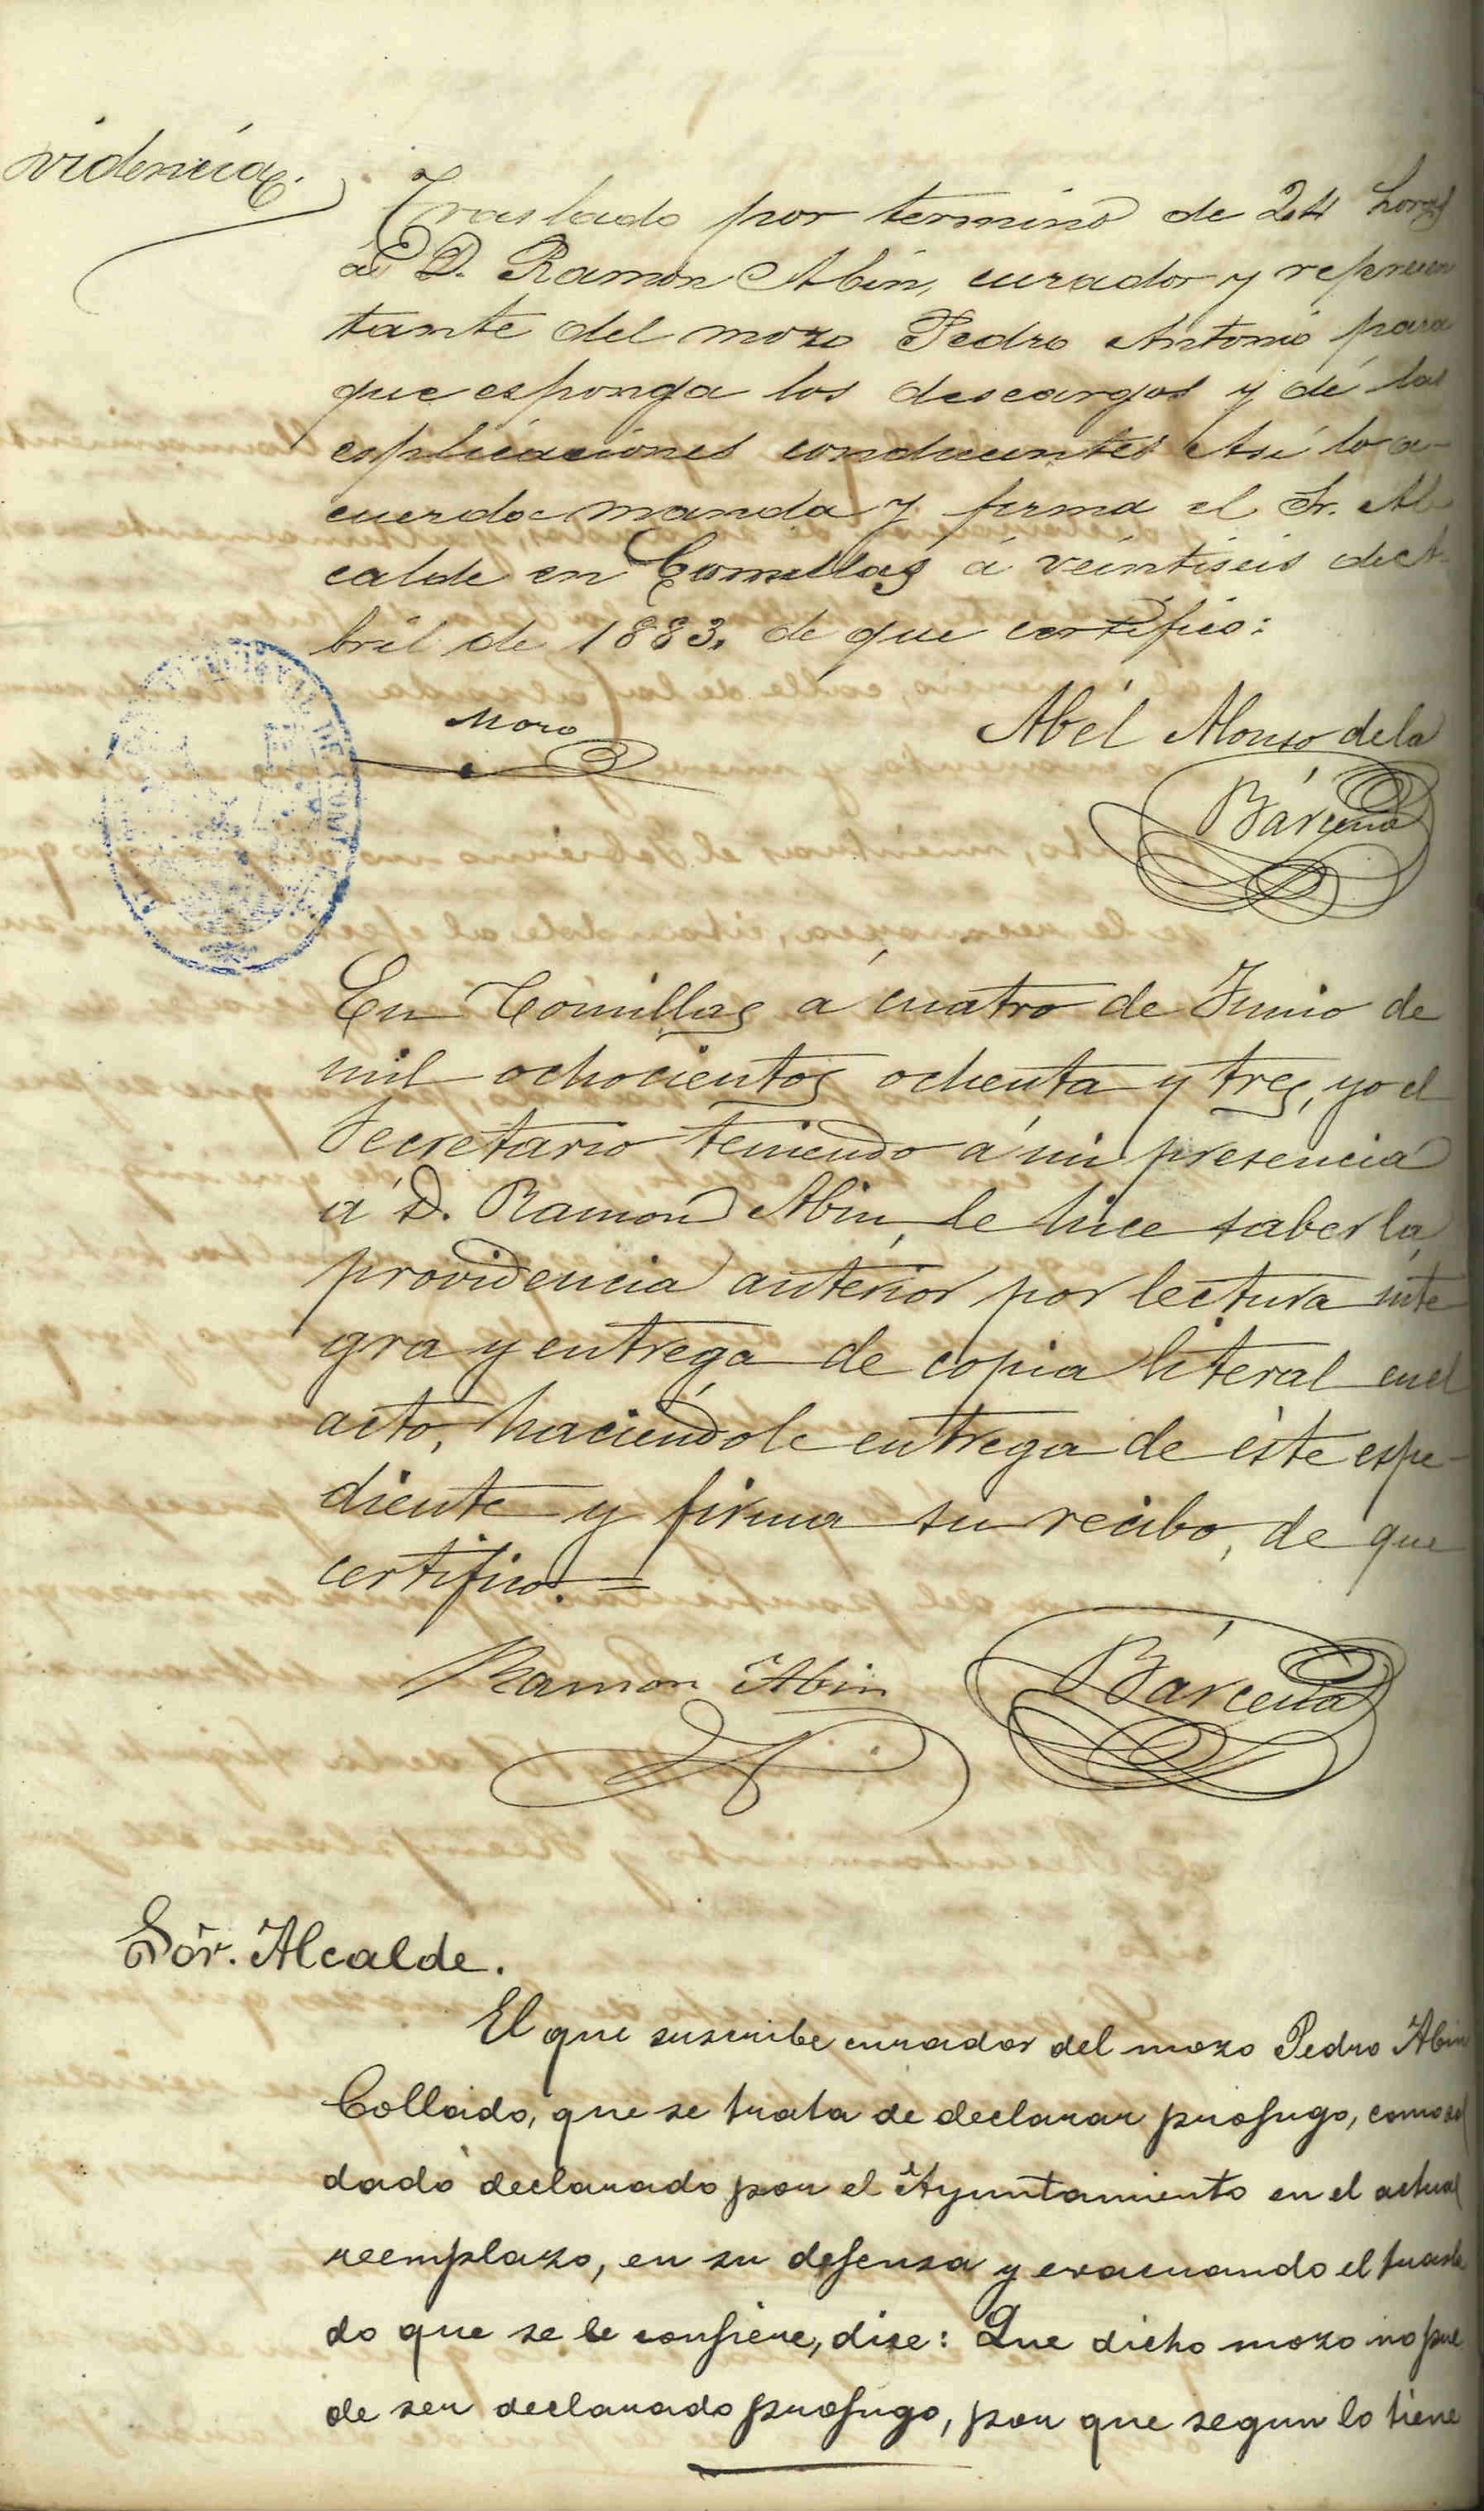 videncia.
Traslado por termino de 24 horas
á D. Ramon Abin, curador y represen
tante del mozo Pedro Antonio para
que esponga los descargos y dé las
esplicaciones conducentes Asi lo a-
cuerda manda y firma el Sr. Al
calde en Comillas á veintiseis de A-
bril de 1883. de que certifico:
Moro
Abél Alonso de la
Bárcena
En Comillas á cuatro de Junio de
mil ochocientos ochenta y tres, yo el
Secretario teniendo á mi presencia
á D. Ramon Abin, le hice saber la
providencia anterior por lectura inte
gra y entrega de copia literal en el
acto, haciéndole entrega de éste espe-
diente y firma su recibo, de que
certifico.=
Ramon Abin
Bárcena
Sor. Alcalde.
El que suscribe curador del mozo Pedro Abin
Collado, que se trata de declarar profugo, como sol
dado declarado por el Ayuntamiento en el actual
reemplazo, en su defensa y evacuando el trasla
do que se le confiere, dise: Que dicho mozo no pue
de ser declarado profugo, por que segun lo tiene